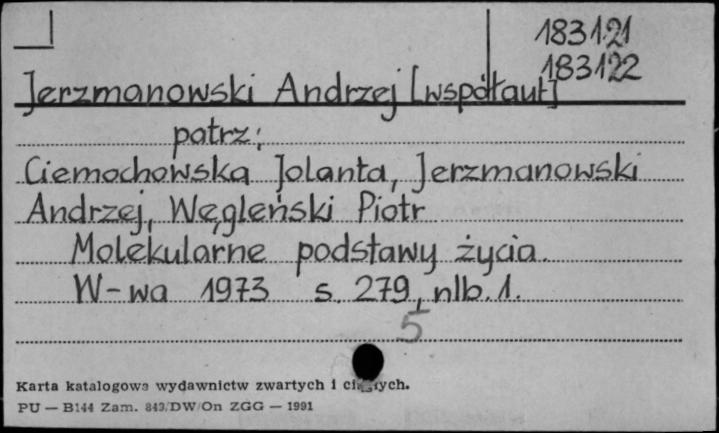 183121
183122
Jerzmanowski Andrzej [współaut]
patrz:
Ciemochowska Jolanta, Jerzmanowski
Andrzej, Węgleński Piotr
Molekularne podstawy życia.
W-wa 1973 s. 279, nlb. 1.
5
Karta katalogowa wydawnictw zwartych i ciągłych.
PU — B144 Zam. 843/DW/On ZGG — 1991